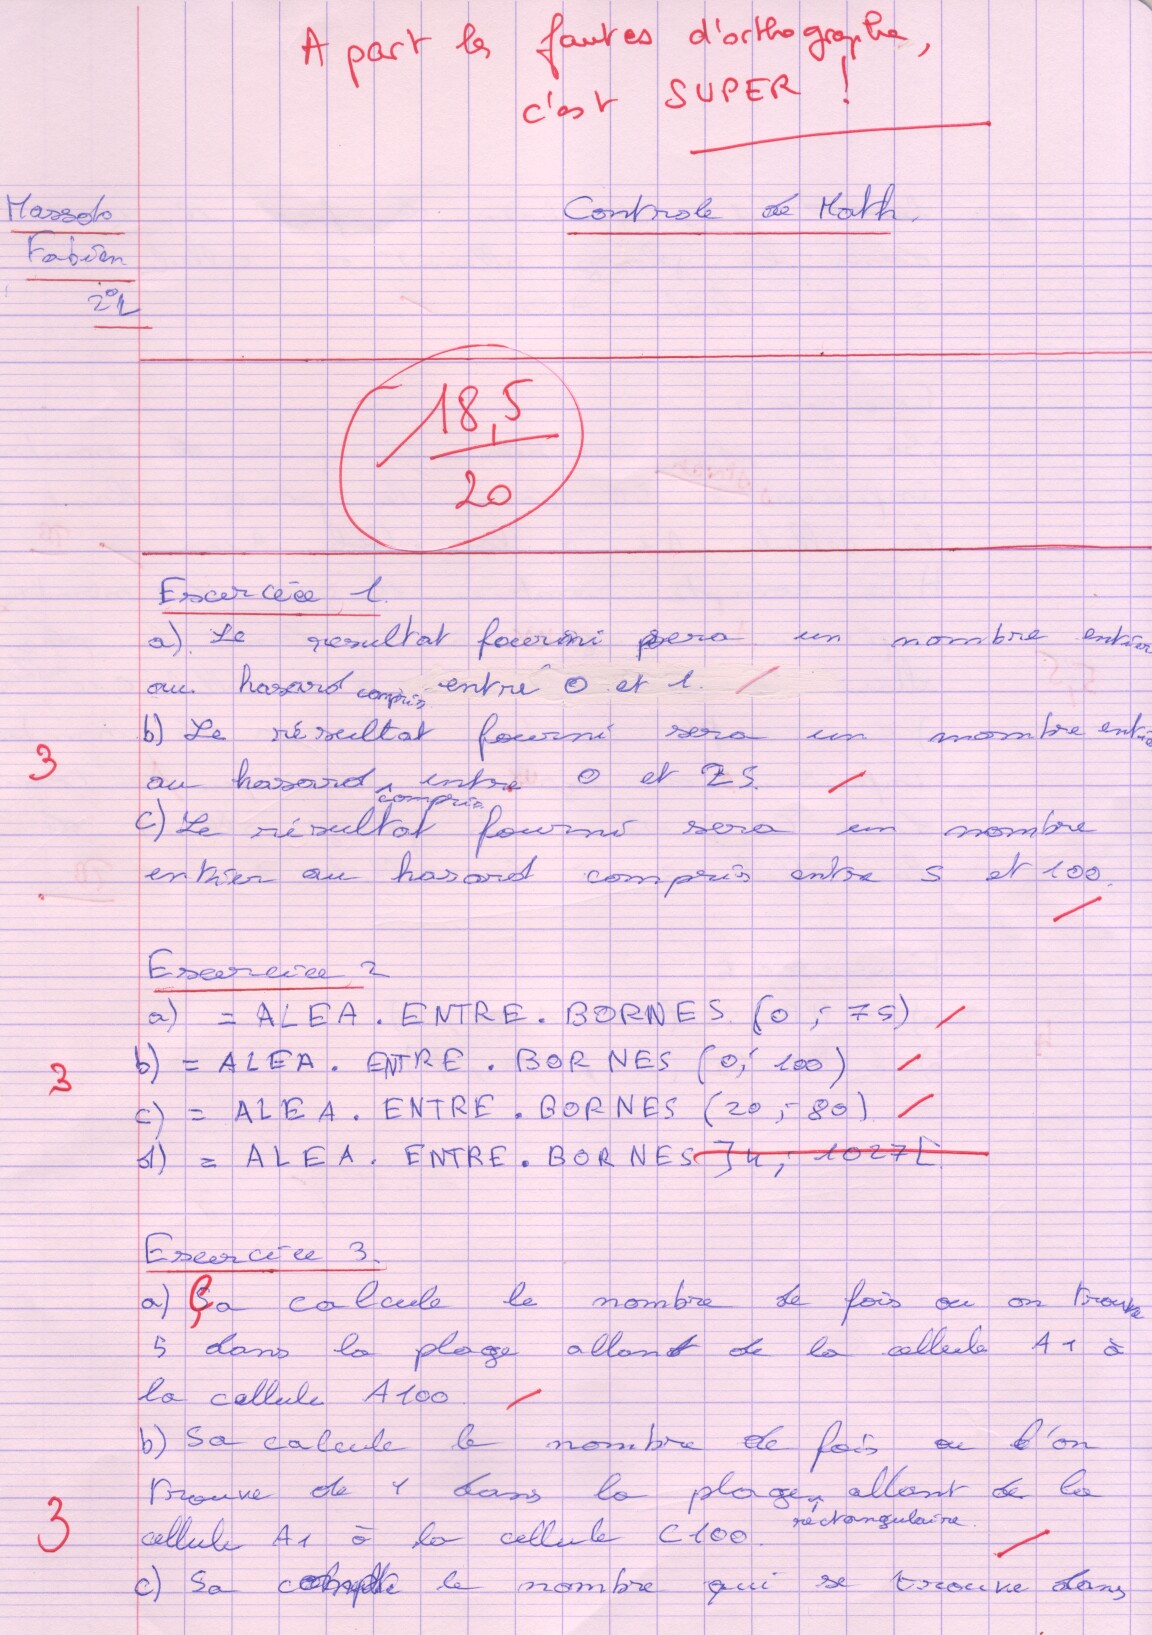 A part les fautes d'orthographe,
c'est SUPER !
Contrôle de Math.
Fabien
2°L
18,5
20
Exercice 1.
a). Le resultat fourni sera un nombre entier
au hasard compris entre 0 et 1.
b) Le résultat fourni sera un nombre entier
au hasard compris entre 0 et 75.
c) Le résultat fourni sera un nombre
entier au hasard compris entre 5 et 100.
3
Exercice 2
a) = ALEA. ENTRE. BORNES (0 ; 75)
b) = ALEA. ENTRE. BORNES (0; 100)
c) = ALEA. ENTRE. BORNES (20 ; 80)
d) = ALEA. ENTRE. BORNES ]4 ; 1027[
3
Exercice 3.
a) Ça calcule le nombre de fois ou on trouve
5 dans la plage allant de la cellule A1 à
la cellule A100.
b) Sa calcule le nombre de fois ou l'on
trouve de 1 dans la plage rectangulaire allant de la
cellule A1 à la cellule C100.
c) Sa compte le nombre qui se trouve dans
3